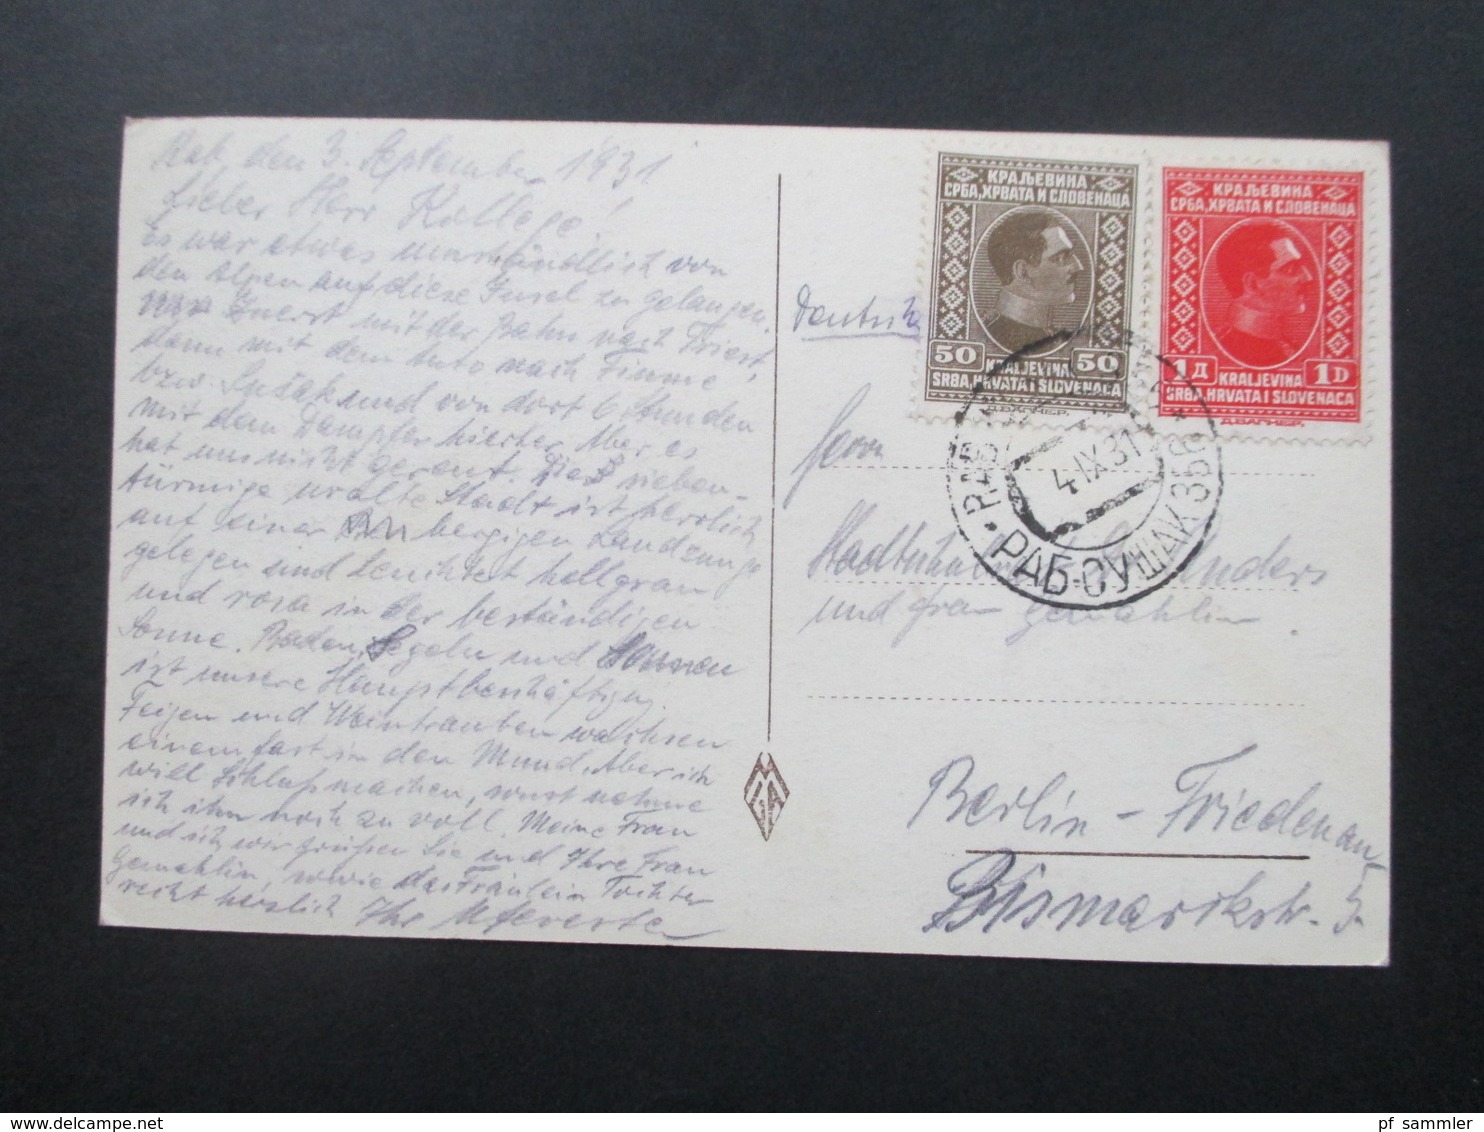 Rab, den 3. September 1931
Lieber Herr Kollege!
Es war etwas umständlich von
den Alpen auf diese Insel zu gelangen.
Zuerst mit der Bahn nach Triest,
dann mit dem Auto nach Fiume
bzw. Sušak und von dort 6 Stunden
mit dem Dampfer hierher. Aber es
hat uns nicht gereut. Die sieben-
türmige uralte Stadt ist herrlich
auf einer bergigen Landzunge
gelegen und leuchtet hellgrau
und rosa in der beständigen
Sonne. Baden, Segeln und Sonnen
ist unsere Hauptbeschäftigung.
Feigen und Weintrauben wachsen
einem fast in den Mund. Aber ich
will Schluß machen, sonst nehme
ich ihm noch zu voll. Meine Frau
und ich wir grüßen Sie und Ihre Frau
Gemahlin, sowie das Fräulein Tochter
recht herzlich Ihr
КРАЉЕВИНА
СРБА, ХРВАТА И СЛОВЕНАЦА
50 50
KRALJEVINA
SRBA, HRVATA I SLOVENACA
Д.ВАГНЕР.
КРАЉЕВИНА
СРБА, ХРВАТА И СЛОВЕНАЦА
1Д 1D
KRALJEVINA
SRBA, HRVATA I SLOVENACA
Д.ВАГНЕР.
4 IX 31
РАБ-СУШАК 36
Herrn
Enders
und Frau Gemahlin.
Berlin - Friedenau
Bismarckstr. 3.
pf_sammler